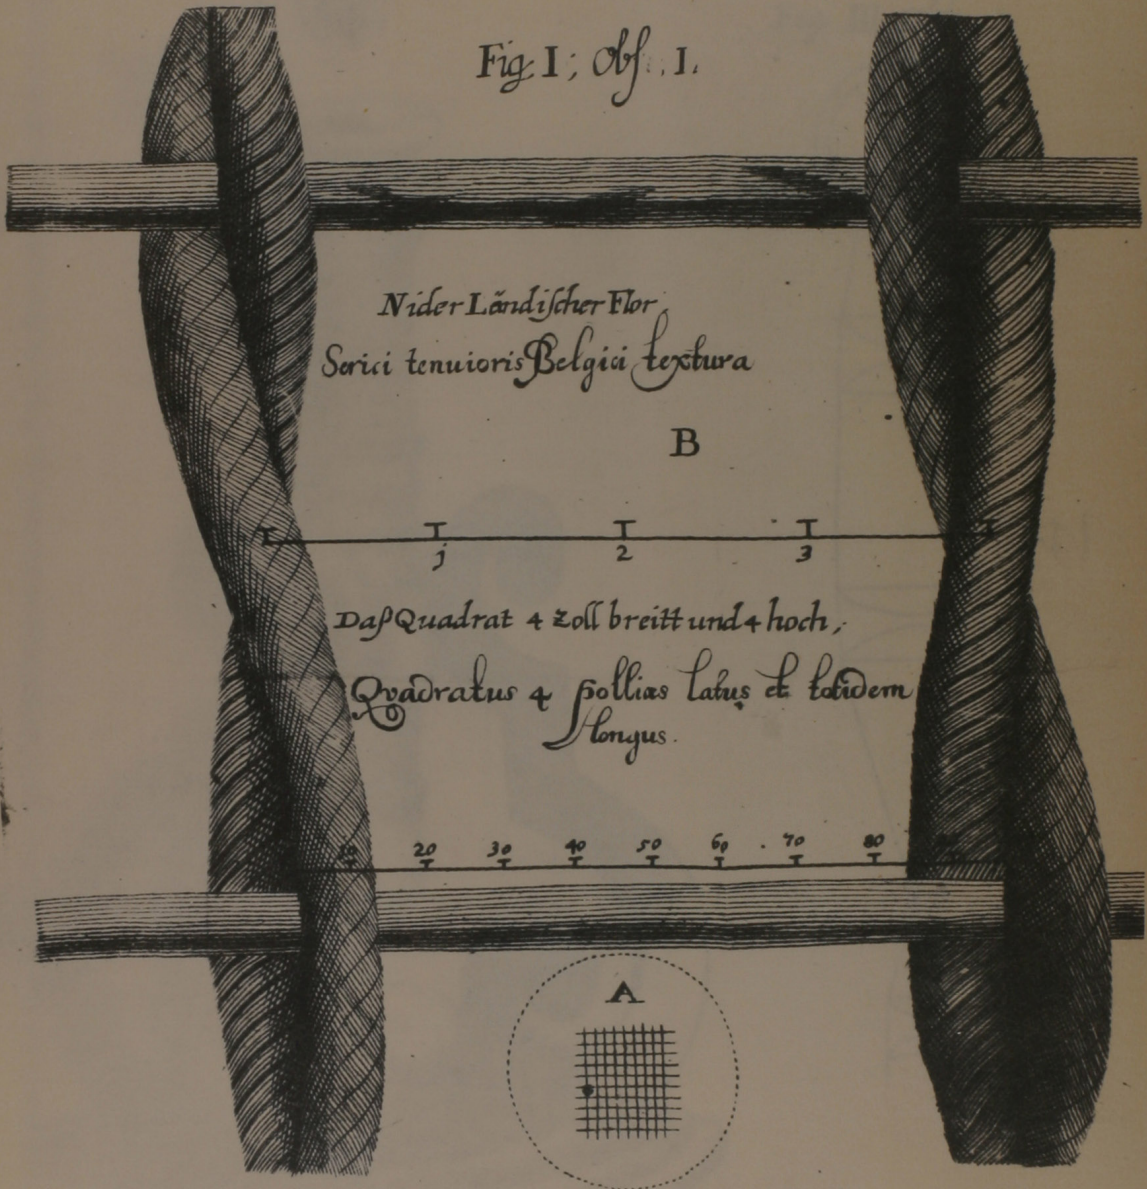 Fig: I; Obs:. I.
Nider Ländischer Flor.
Serici tenuioris Belgici textura
B
1 2 3
Daß Quadrat 4 Zoll breitt und 4 hoch,
Qvadratus 4 pollices latus et totidem
longus.
10 20 30 40 50 60 70 80
A